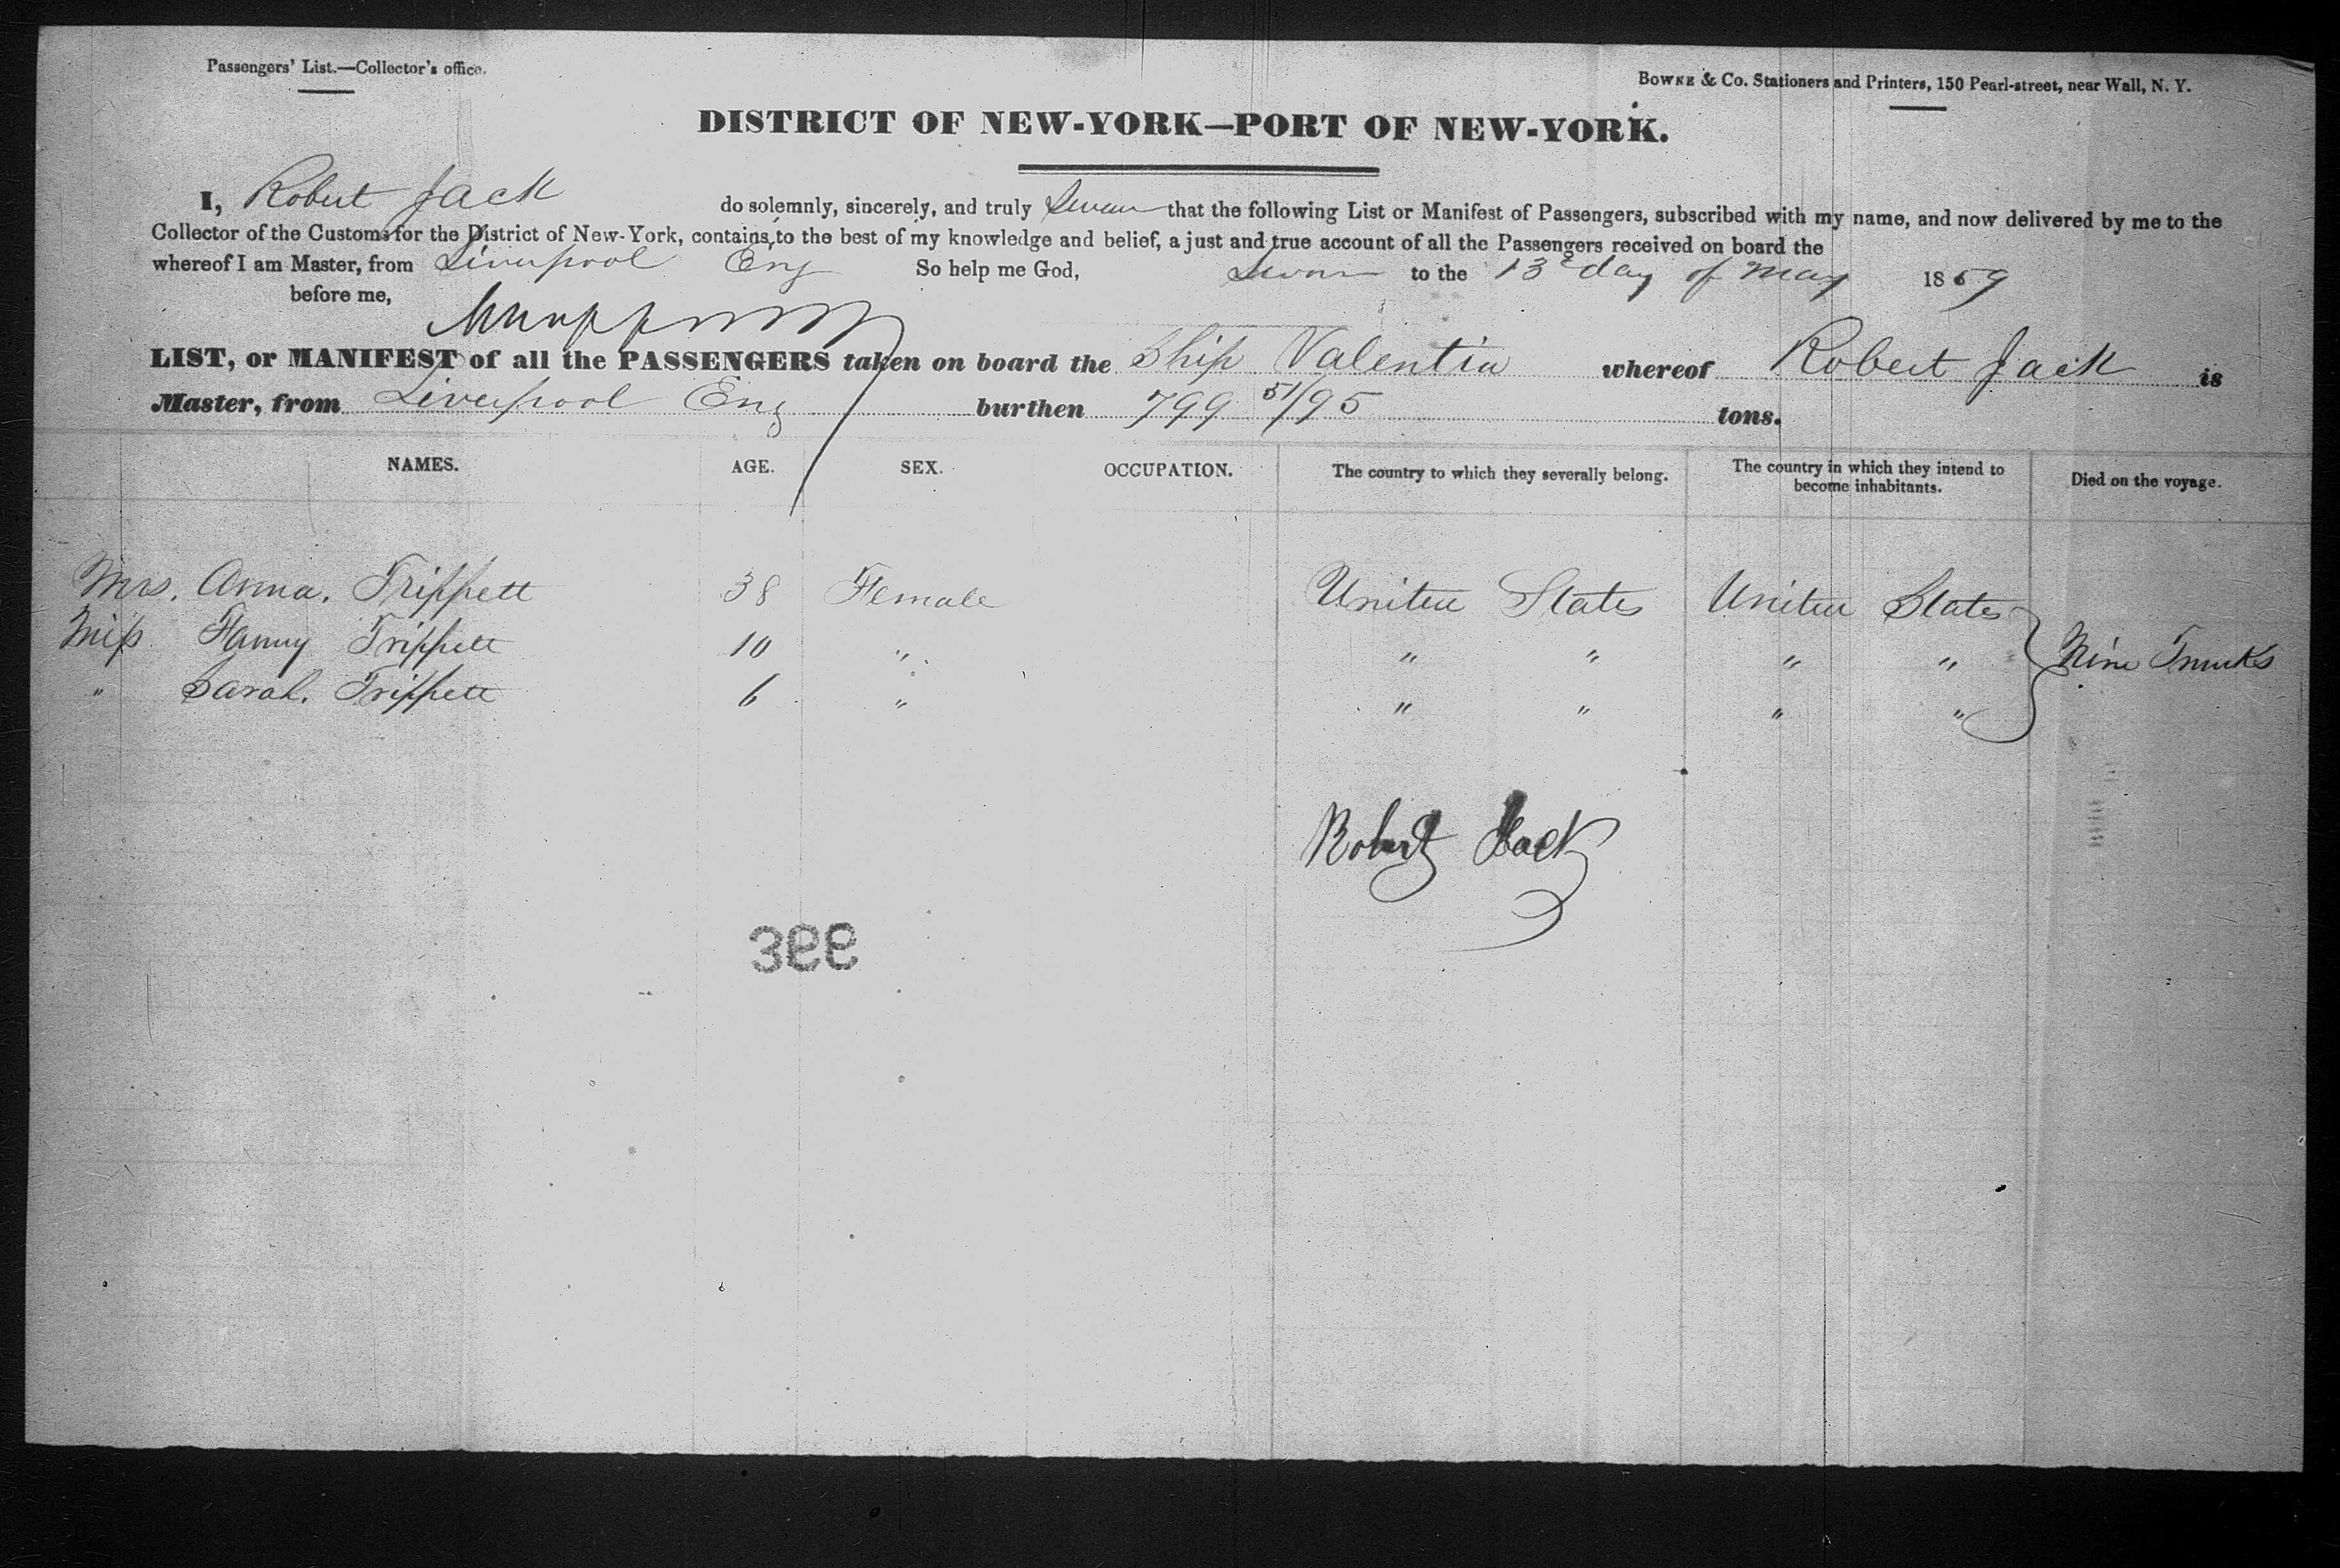 Passengers' List.—Collector's office.
BOWNE & Co. Stationers and Printers, 150 Pearl-street, near Wall, N. Y.
DISTRICT OF NEW-YORK—PORT OF NEW-YORK.
I, Robert Jack do solemnly, sincerely, and truly Swear that the following List or Manifest of Passengers, subscribed with my name, and now delivered by me to the
Collector of the Customs for the District of New-York, contains, to the best of my knowledge and belief, a just and true account of all the Passengers received on board the
whereof I am Master, from Liverpool Eng So help me God, Sworn to the 13 day of May 1859
before me,
LIST, or MANIFEST of all the PASSENGERS taken on board the Ship Valentia whereof Robert Jack is
Master, from Liverpool Eng burthen 799 51/95 tons.
NAMES. AGE. SEX. OCCUPATION. The country to which they severally belong. The country in which they intend to become inhabitants. Died on the voyage.
Mrs. Anna. Trippett 38 Female United States United States
Miss Fanny Trippett 10 " " " " " Nine Trunks
" Sarah. Trippett 6 " " " " "
Robert Jack
399